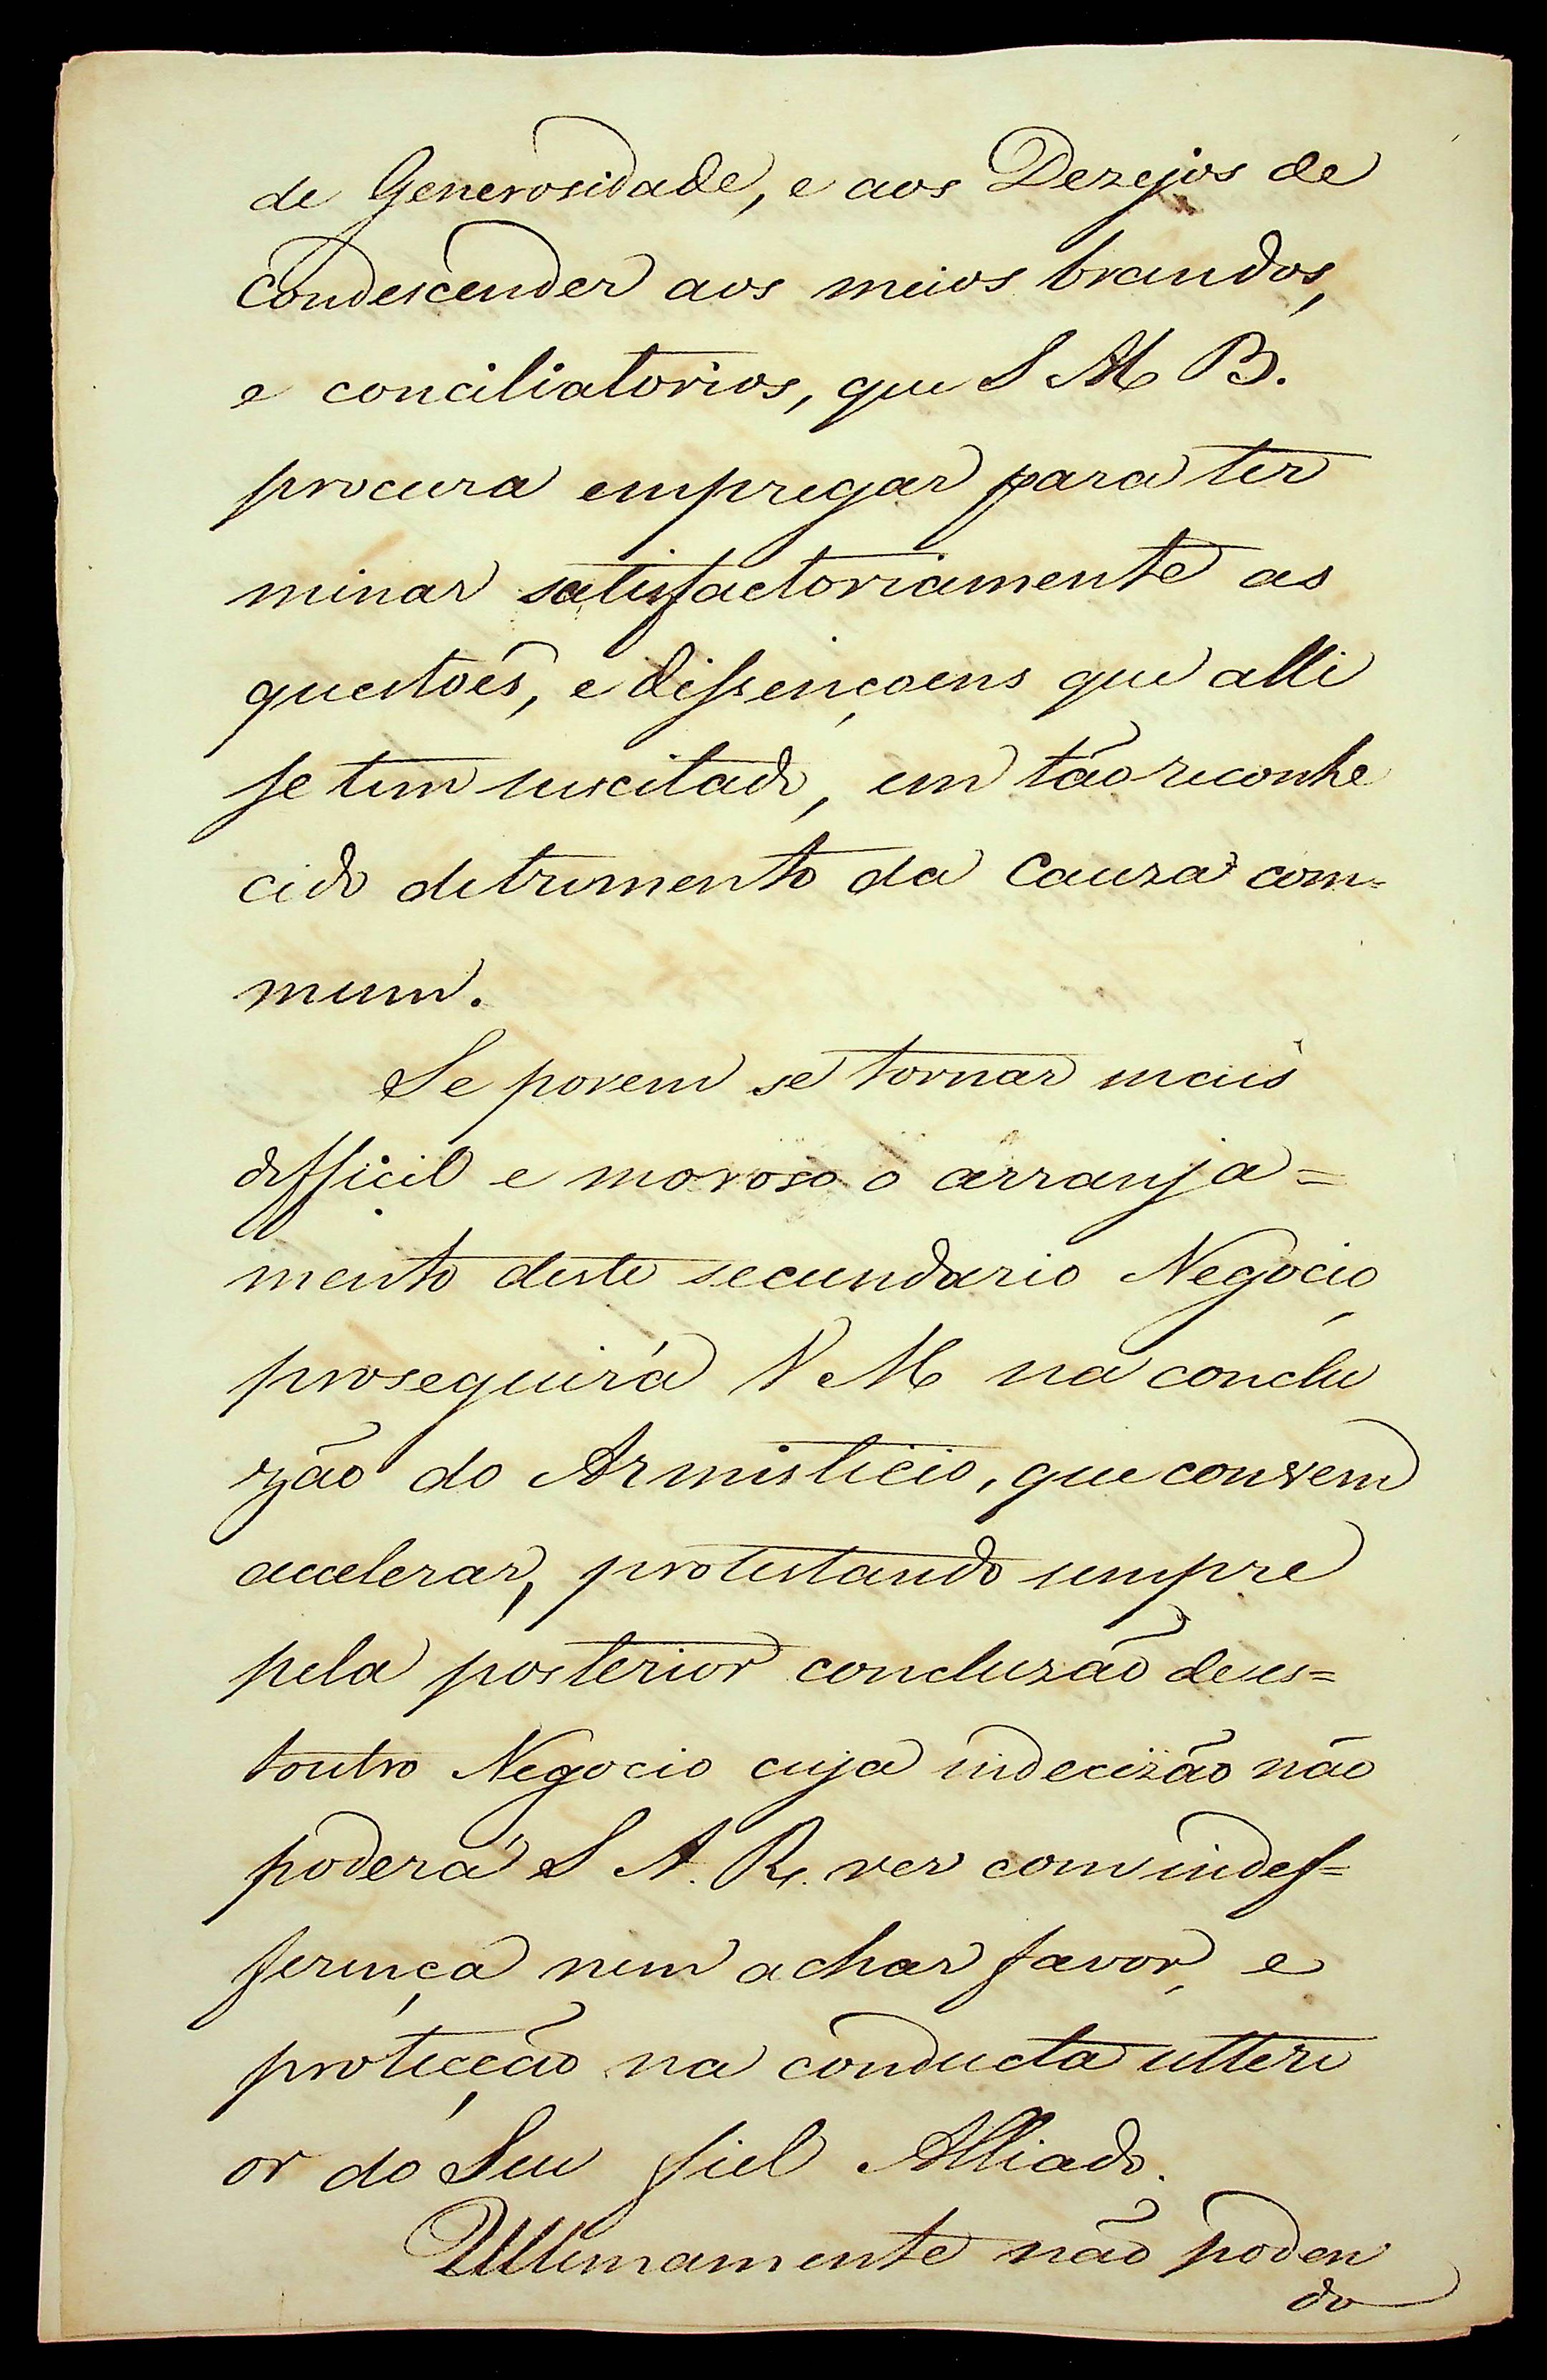 de Generosidade, e aos Dezejos de
Condescender aos meios brandos,
e conciliatorios, que S M B.
procura empregar para ter
minar satisfactoriamente as
questoẽs, e dissençoens que alli
se tem suscitado, em tão reconhe
cido detrimento da Cauza com=
mum.
Se porem se tornar mais
difficil e moroso o arranja=
mento deste secundario Negocio,
proseguirá V M na conclu
zão do Armisticio, que convem
accelerar, protestando sempre
pela posterior concluzão de es=
toutro Negocio cuja indecizão não
poderá S A. R. ver com indef=
ferença nem achar favor, e
protecção na conducta ulteri
or do Seu fiel Alliado.
Ultimamente não poden
do